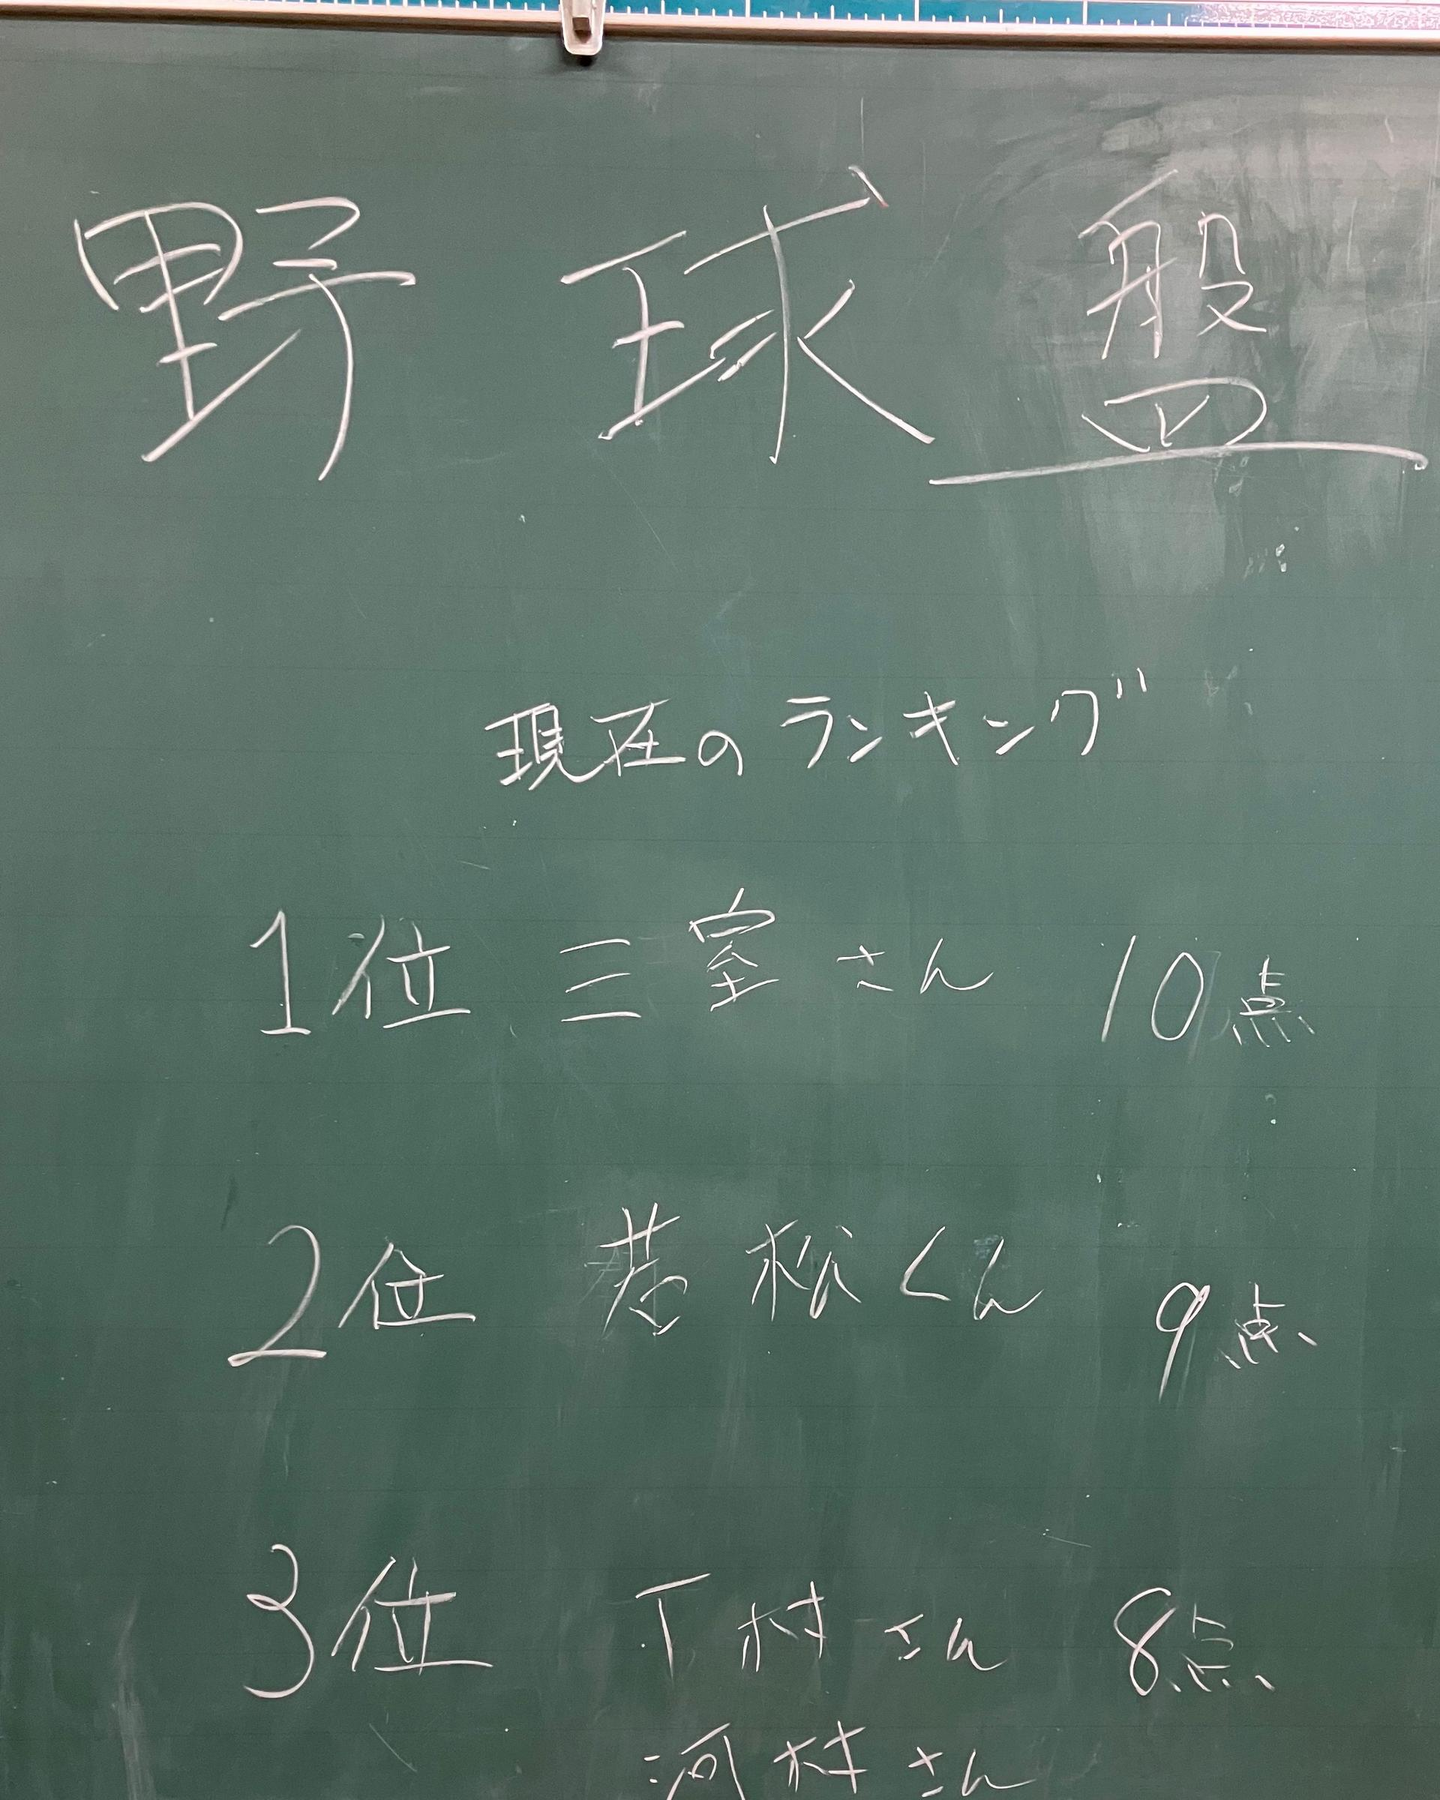 野球盤
現在のランキング
1位 三室さん 10点
2位 若松くん 9点
3位 下村さん 8点
河村さん